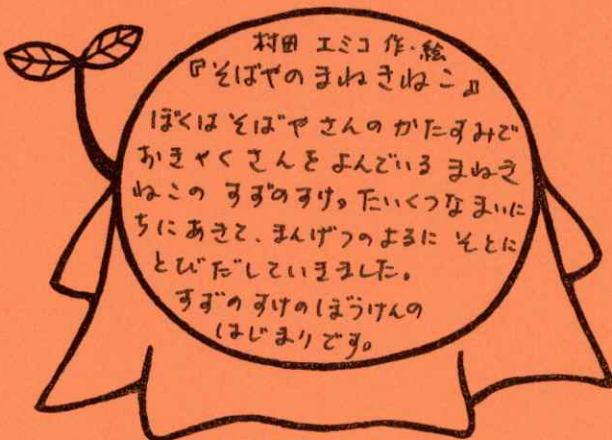 村田 エミコ 作・絵
『そばやの まねきねこ』
ぼくは そばや さんの かたすみで
おきゃく さんを よんでいる まねき
ねこの すずのすけ。たいくつな まいに
ちに あきて、まんげつの よるに そとに
とび だして いきました。
すずの すけの ぼうけんの
はじまりです。